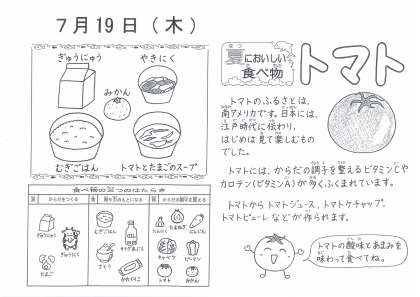 7月19日（木）
ぎゅうにゅう
やきにく
みかん
むぎごはん
トマトとたまごのスープ
食べ物の三つのはたらき
赤 からだをつくる
黄 熱や力のもとになる
緑 からだの調子を整える
ぎゅうにゅう
ぎゅうにく
たまご
むぎごはん
さとう
かたくりこ
にんにく
たまねぎ
にんじん
キャベツ
ピーマン
トマト
みかん
夏においしい
食べ物
トマト
トマトのふるさとは、
南アメリカです。日本には、
江戸時代に伝わり、
はじめは見て楽しむもの
でした。
トマトには、からだの調子を整えるビタミンCや
カロテン(ビタミンA)が多くふくまれています。
トマトからトマトジュース、トマトケチャップ、
トマトピューレなどが作られます。
トマトの酸味とあまみを
味わって食べてね。